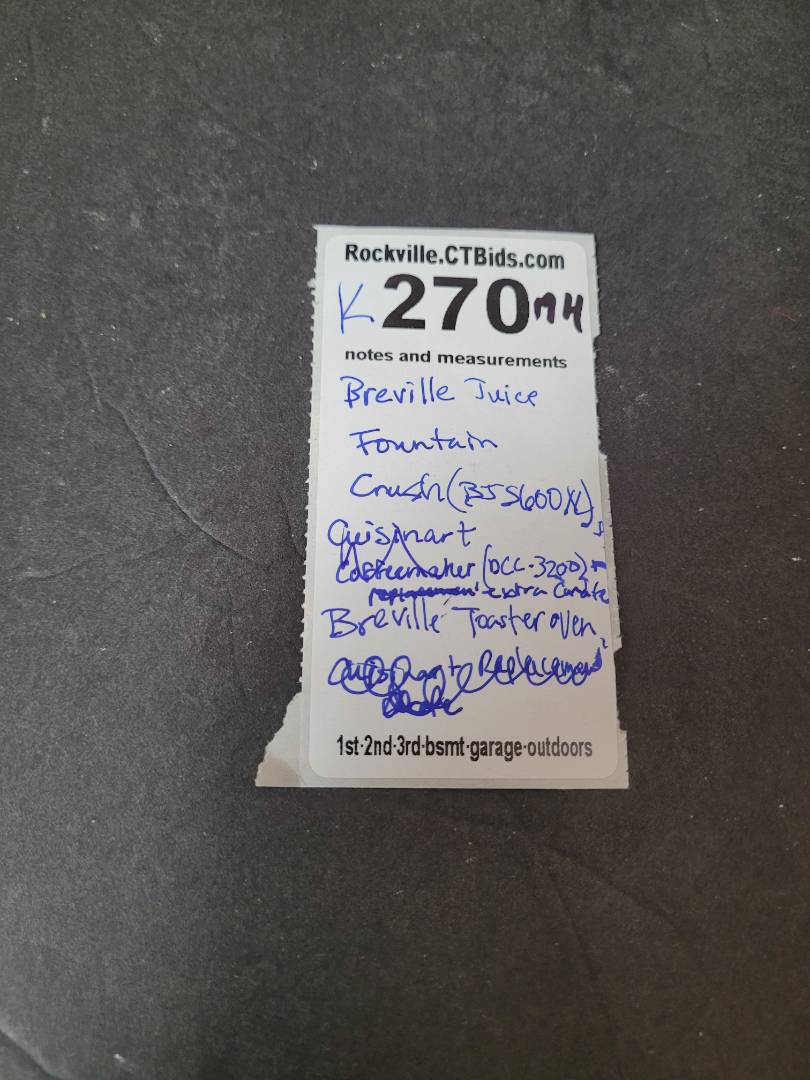 Rockville.CTBids.com
K 270 MH
notes and measurements
Breville Juice
Fountain
Crush (BJS600XL),
Cuisinart
Coffeemaker (DCC-3200) +
replacement extra Carafe
Breville Toaster oven,
Cuisinart Replacement
1st·2nd·3rd·bsmt·garage·outdoors